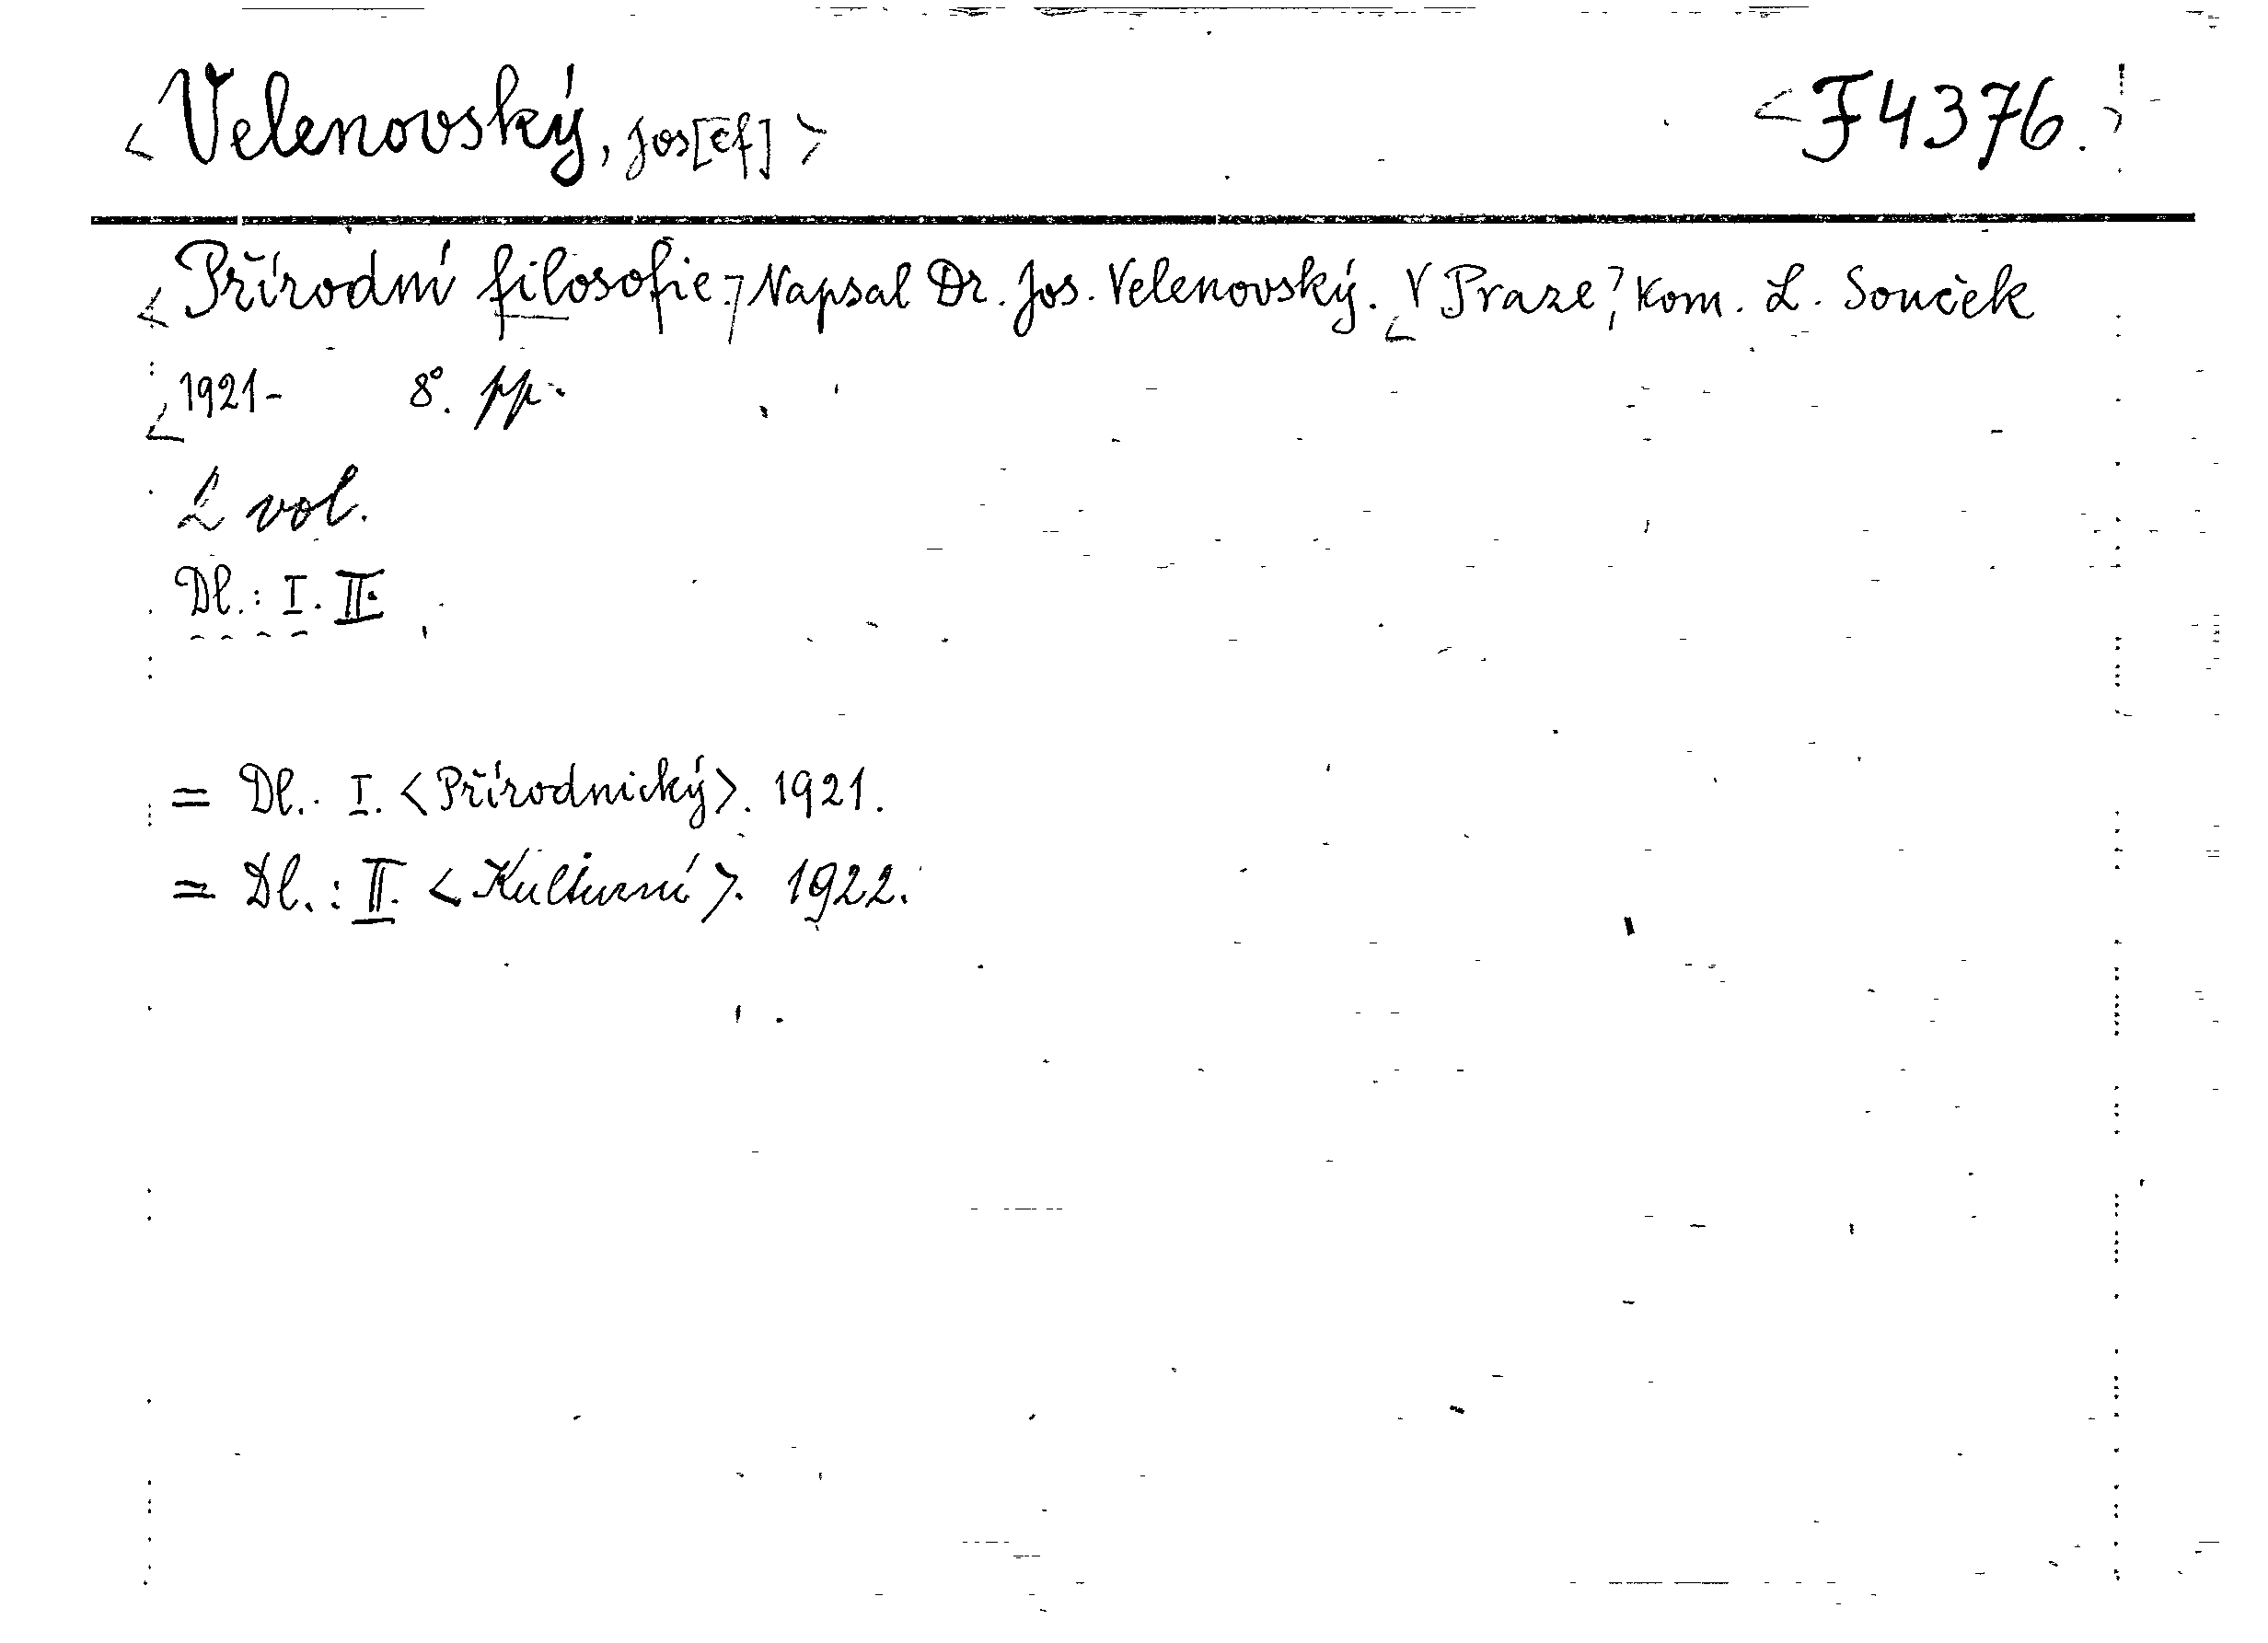 <Velenovský, Jos[ef]> <F4376.>
<Přírodní filosofie.> Napsal Dr. Jos. Velenovský. <V Praze>, Kom. L. Souček
<1921- 8°. pp.
2 vol.
Dl.: I. II.
= Dl.: I. <Přírodnický>. 1921.
= Dl.: II. <Kulturní>. 1922.